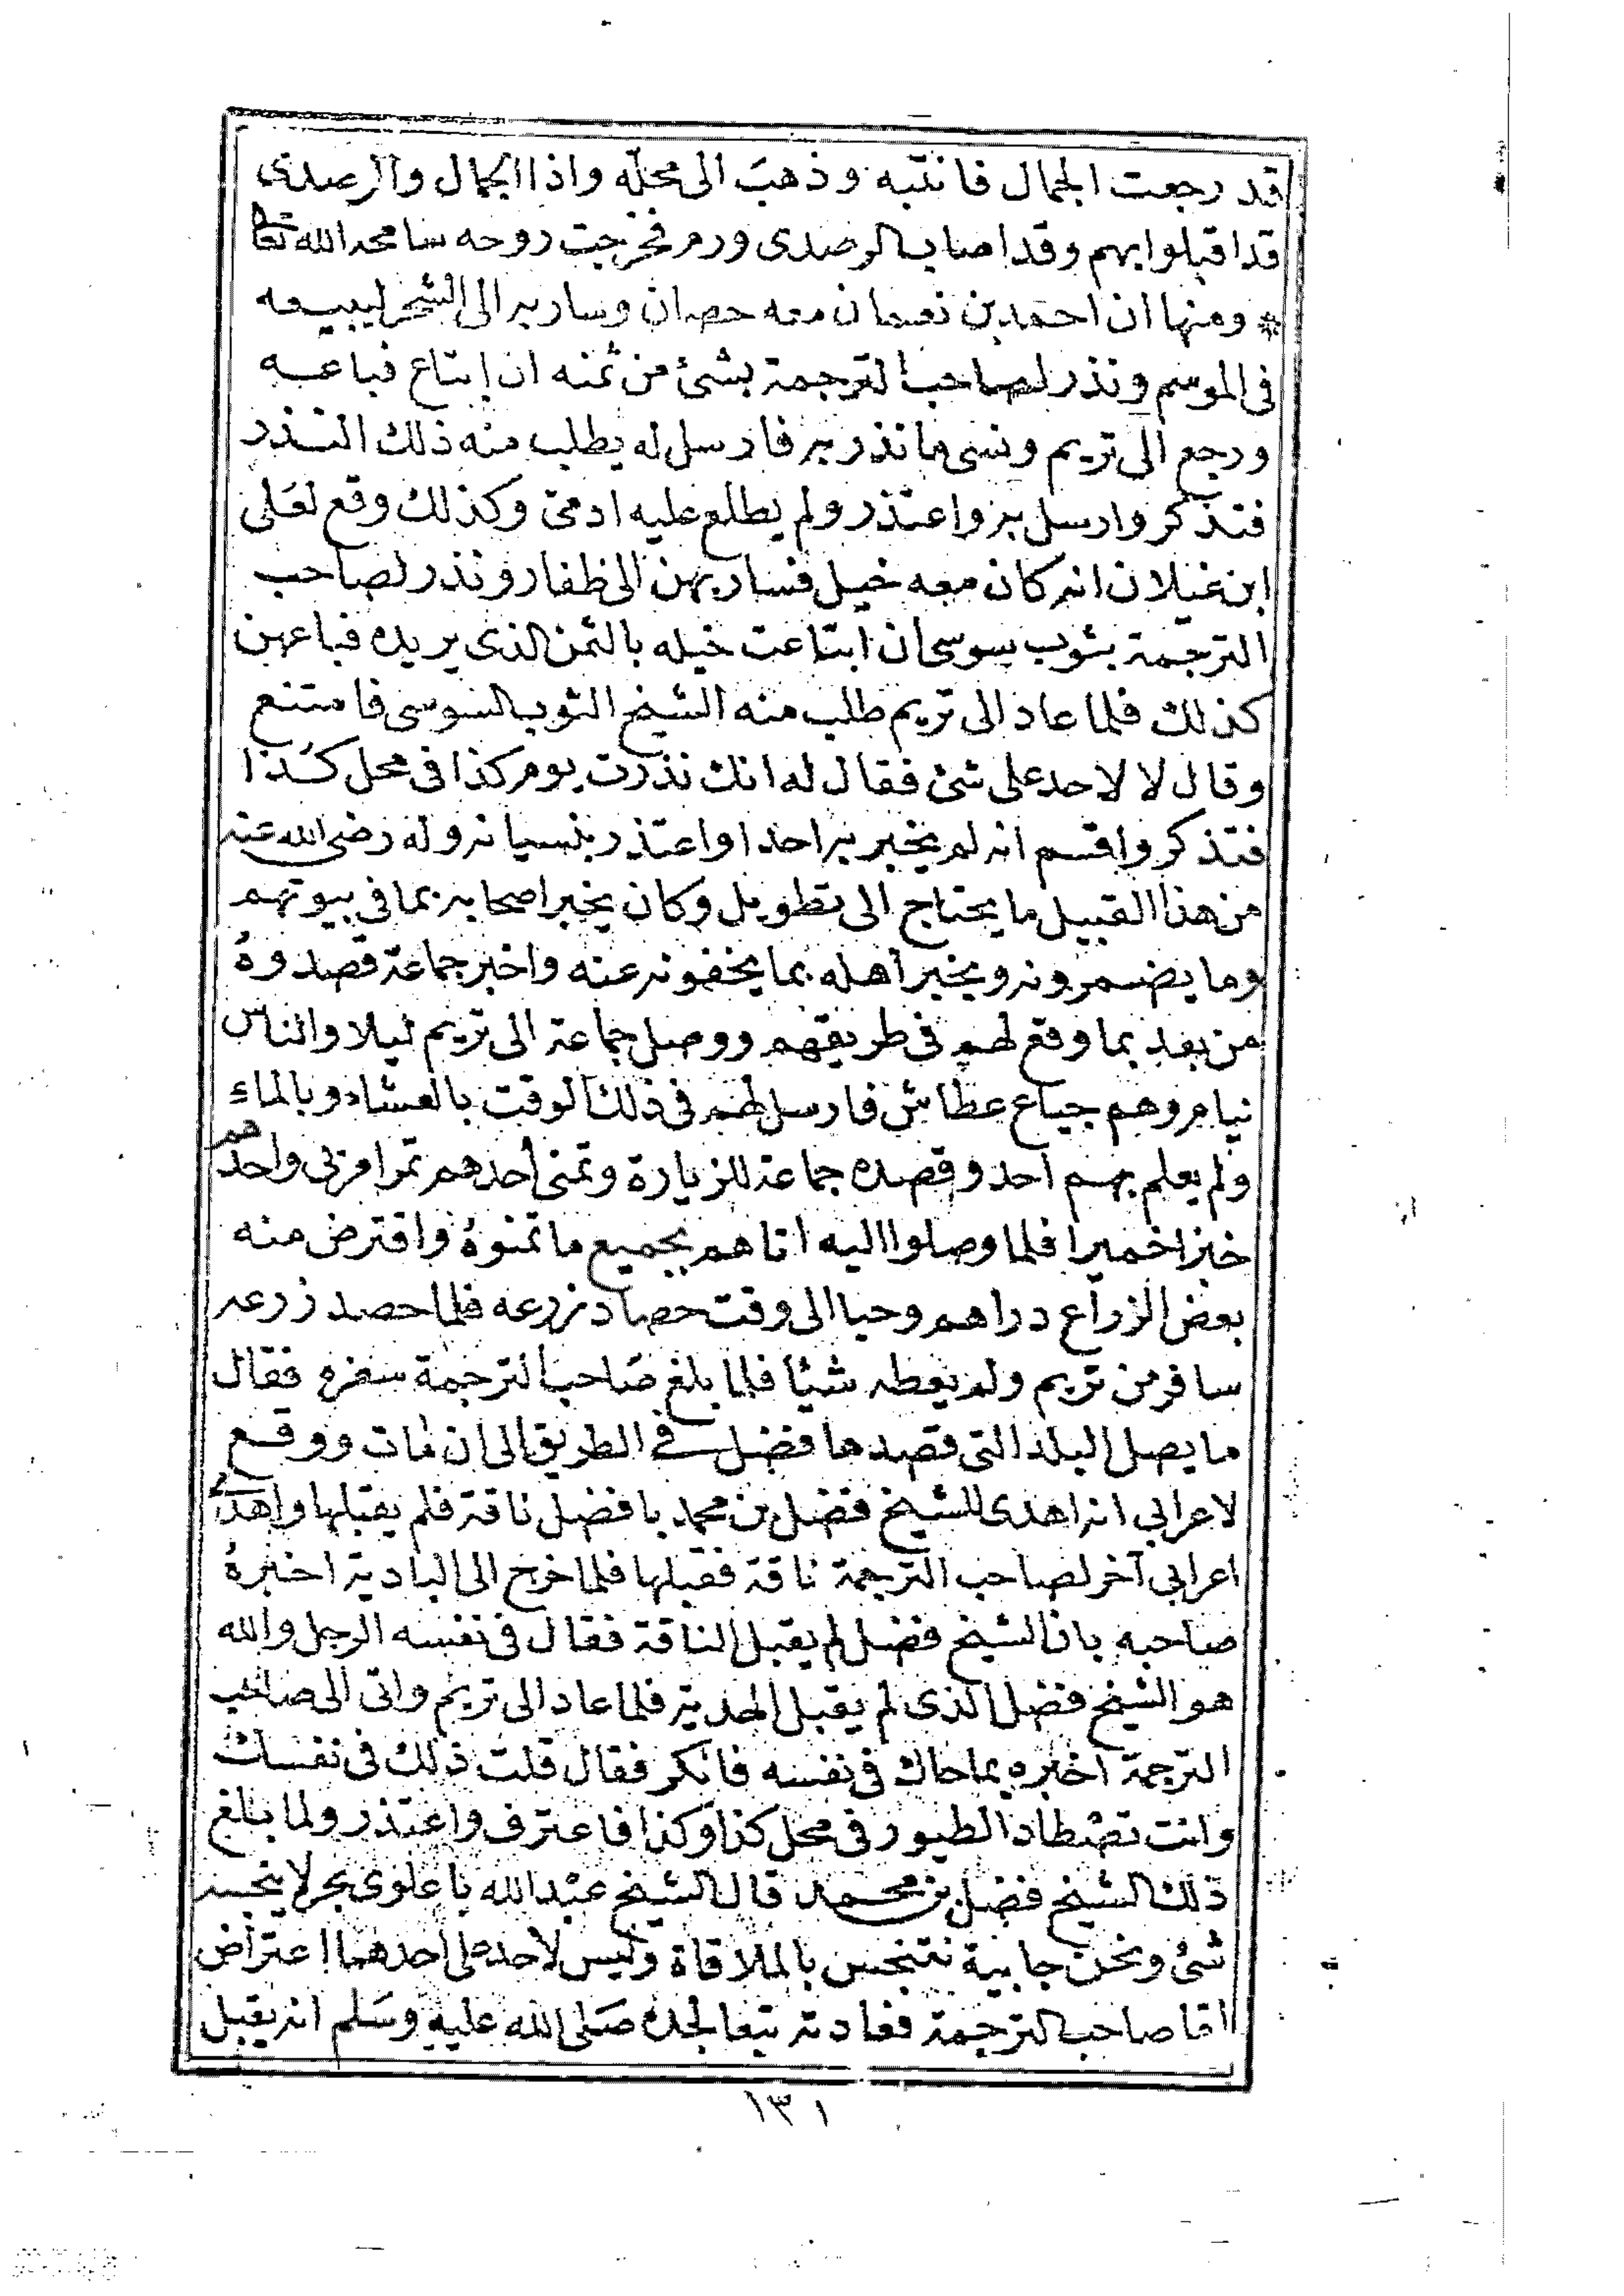 قد رجعت الجمال فانتبه وذهب الى محله واذا الجمال والرصدى
قد اقبلوا بهم وقد اصاب الرصدى ورم فخرجت روحه سامحه الله تعا
* ومنها ان احمد بن نعمان معه حصان وسار به الى الشحر ليبيعه
فى الموسم ونذر لصاحب الترجمة بشئ من ثمنه ان ابتاع فباعه
ورجع الى تريم ونسى ما نذر به فارسل له يطلب منه ذلك النذر
فتذكر وارسل به واعتذر ولم يطلع عليه ادمى وكذلك وقع لعلى
ابن غيلان انه كان معه خيل فسار بهن الى ظفار ونذر لصاحب
الترجمة بثوب سوسى ان ابتاعت خيله بالثمن الذى يريده فباعهن
كذلك فلما عاد الى تريم طلب منه الشيخ الثوب السوسى فامتنع
وقال لا لاحد على شئ فقال له انك نذرت يوم كذا فى محل كذا
فتذكر واقسم انه لم يخبر به احدا واعتذر بنسيانه وله رضى الله عنه
من هذا القبيل ما يحتاج الى تطويل وكان يخبر اصحابه بما فى بيوتهم
وما يضمرونه ويخبر اهله بما يخفونه عنه واخبر جماعة قصدوهُ
من بعد بما وقع لهم فى طريقهم ووصل جماعة الى تريم ليلا والناس
نيام وهم جياع عطاش فارسل لهم فى ذلك الوقت بالعشاء وبالماء
ولم يعلم بهم احد وقصده جماعة للزيارة وتمنى احدهم تمرا مزبى واحدهم
خبزا خميرا فلما وصلوا اليه اتاهم بجميع ما تمنوهُ واقترض منه
بعض الزراع دراهم وحبا الى وقت حصاد زرعه فلما حصد زرعه
سافر من تريم ولم يعطه شيئا فلما بلغ صاحب الترجمة سفره فقال
ما يصل البلد التى قصدها فضل فى الطريق الى ان مات ووقع
لاعرابى انه اهدى للشيخ فضل بن محمد بافضل ناقة فلم يقبلها واهدى
اعرابى آخر لصاحب الترجمة ناقة فقبلها فلما خرج الى البادية اخبرهُ
صاحبه بان الشيخ فضل لم يقبل الناقة فقال فى نفسه الرجل والله
هو الشيخ فضل الذى لم يقبل الهدية فلما عاد الى تريم واتى الى صاحب
الترجمة اخبره بما حاك فى نفسه فانكر فقال قلت ذلك فى نفسك
وانت تصطاد الطيور فى محل كذا وكذا فاعترف واعتذر ولما بلغ
ذلك الشيخ فضل بن محمد قال الشيخ عبد الله باعلوى بحر لا ينجسه
شئ ونحن جابية تتنجس بالملاقاة وليس لاحد على احدهما اعتراض
اما صاحب الترجمة فعادته تبعا لجده صَلى الله عليه وسَلم انه يقبل
١٣١